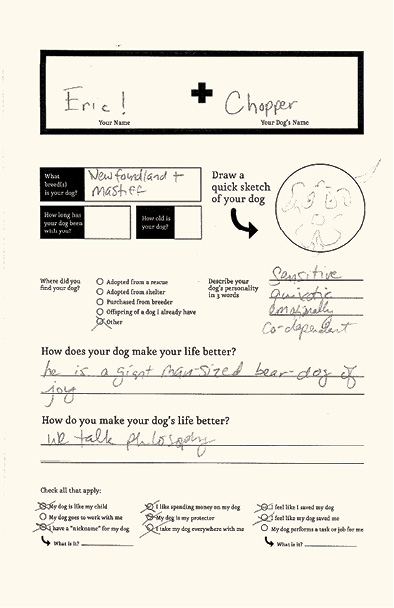 Eric! + Chopper
Your Name Your Dog's Name
What breed(s) is your dog?
Newfoundland +
Mastiff
How long has your dog been with you?
How old is your dog?
Draw a
quick sketch
of your dog
Where did you
find your dog?
Adopted from a rescue
Adopted from shelter
Purchased from breeder
Offspring of a dog I already have
Other
Describe your
dog's personality
in 3 words
Sensitive
emotionally
co-dependent
How does your dog make your life better?
he is a giant man-sized bear-dog of
joy
How do you make your dog's life better?
we talk philosophy
Check all that apply:
My dog is like my child
My dog goes to work with me
I have a "nickname" for my dog
What is it?
I like spending money on my dog
My dog is my protector
I take my dog everywhere with me
I feel like I saved my dog
I feel like my dog saved me
My dog performs a task or job for me
What is it?